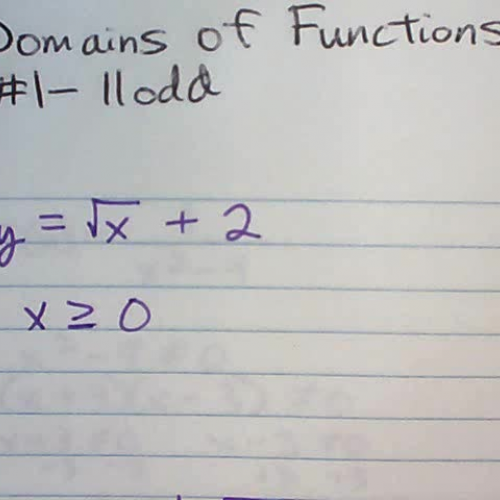 Domains of Functions
#1- 11 odd
y = √x + 2
x ≥ 0